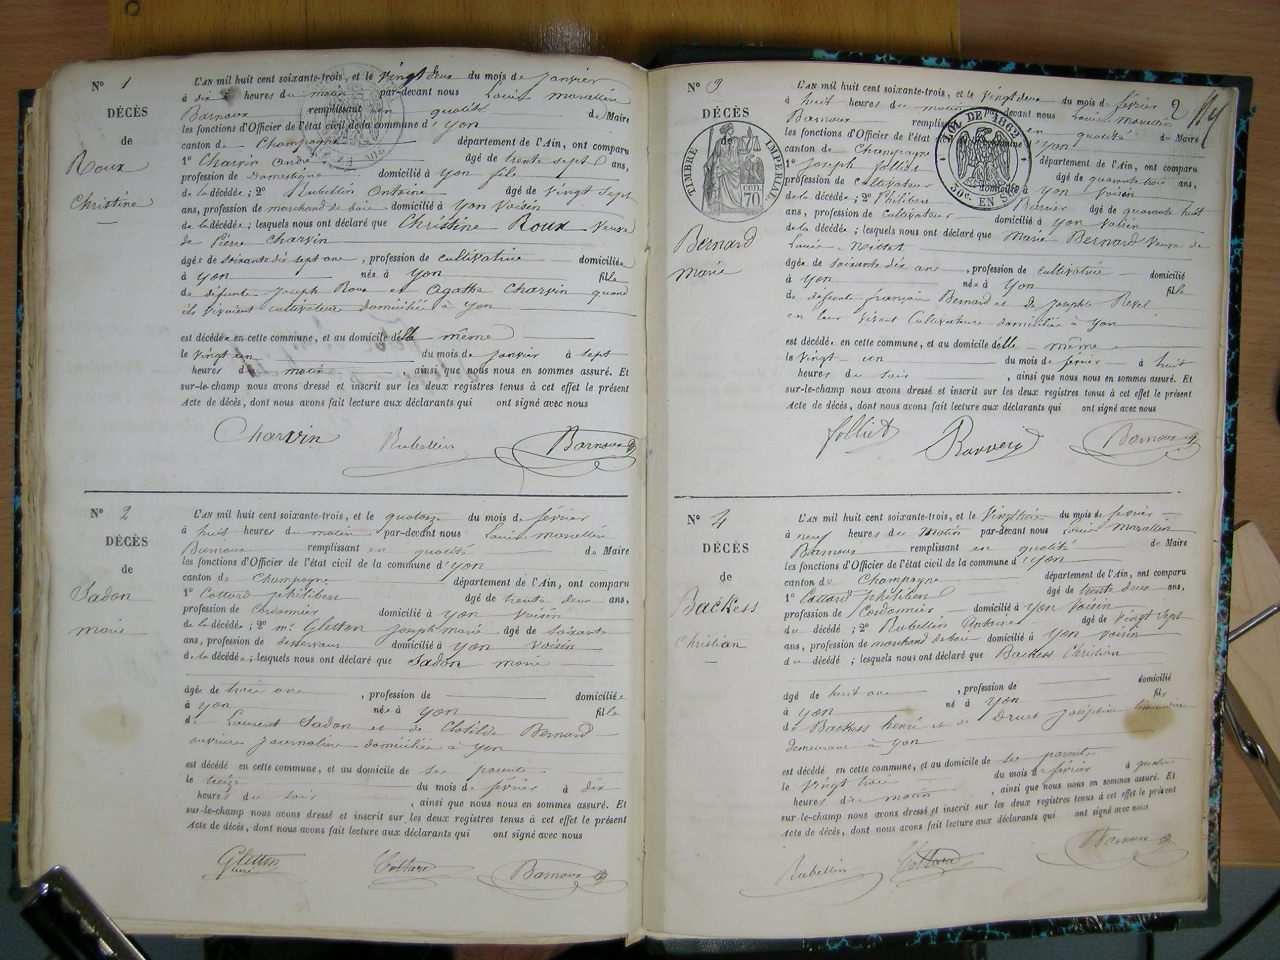 N° 1
DÉCÈS
de
Roux
Christine
L'AN mil huit cent soixante-trois, et le vingt deux du mois de janvier
à dix heures du matin par-devant nous Louis Marcellin
Barnoux remplissant en qualité de Maire
les fonctions d'Officier de l'état civil de la commune d'yon
canton de Champagne département de l'Ain, ont comparu
1° Charvin André âgé de trente sept ans,
profession de Domestique domicilié à yon fils
de la décédée; 2° Rubellin Antoine âgé de vingt sept
ans, profession de marchand de bois domicilié à yon voisin
de la décédée; lesquels nous ont déclaré que Christine Roux veuve
de Pierre Charvin
âgée de soixante dix sept ans, profession de cultivatrice domiciliée
à yon née à yon fille
de défunts Joseph Roux et Agathe Charvin quand
ils vivaient cultivateurs domiciliés à yon
est décédée en cette commune, et au domicile d'elle même
le vingt un du mois de janvier à sept
heures du matin, ainsi que nous nous en sommes assuré. Et
sur-le-champ nous avons dressé et inscrit sur les deux registres tenus à cet effet le présent
Acte de décès, dont nous avons fait lecture aux déclarants qui ont signé avec nous
Charvin Rubellin Barnoux
N° 2
DÉCÈS
de
Sadon
marie
L'AN mil huit cent soixante-trois, et le quatorze du mois de février
à huit heures du matin par-devant nous Louis Marcellin
Barnoux remplissant en qualité de Maire
les fonctions d'Officier de l'état civil de la commune d'yon
canton de Champagne département de l'Ain, ont comparu
1° Cottard philibert âgé de trente deux ans,
profession de Cordonnier domicilié à yon voisin
de la décédée; 2° Mr Gletton Joseph Marie âgé de soixante
ans, profession de desservant domicilié à yon voisin
de la décédée; lesquels nous ont déclaré que Sadon marie
âgée de trois ans, profession de domiciliée
à yon née à yon fille
de Laurent Sadon et de Clotilde Bernard
ouvriers journaliers domiciliés à yon
est décédée en cette commune, et au domicile de ses parents
le treize du mois de février à dix
heures du soir, ainsi que nous nous en sommes assuré. Et
sur-le-champ nous avons dressé et inscrit sur les deux registres tenus à cet effet le présent
Acte de décès, dont nous avons fait lecture aux déclarants qui ont signé avec nous
Gletton curé Cottard Barnoux
2
N° 3
DÉCÈS
de
TIMBRE IMPÉRIAL
70
Bernard
marie
LOI DE 1862
EN SUS
L'AN mil huit cent soixante-trois, et le vingt deux du mois de février
à huit heures du matin par-devant nous Louis Marcellin
Barnoux remplissant en qualité de Maire
les fonctions d'Officier de l'état civil de la commune d'yon
canton de Champagne département de l'Ain, ont comparu
1° Joseph Folliet âgé de quarante trois ans,
profession de cultivateur domicilié à yon voisin
de la décédée; 2° Philibert âgé de quarante huit
ans, profession de cultivateur domicilié à yon voisin
de la décédée; lesquels nous ont déclaré que Marie Bernard veuve de
Louis
âgée de soixante dix ans, profession de cultivatrice domicilié
à yon née à yon fille
de défunts françois Bernard et de Josephte Revel
en leur vivant Cultivateurs domiciliés à yon
est décédée en cette commune, et au domicile d'elle même
le vingt un du mois de février à huit
heures du soir, ainsi que nous nous en sommes assuré. Et
sur-le-champ nous avons dressé et inscrit sur les deux registres tenus à cet effet le présent
Acte de décès, dont nous avons fait lecture aux déclarants qui ont signé avec nous
Folliet Barnoux
N° 4
DÉCÈS
de
Backess
Christian
L'AN mil huit cent soixante-trois, et le vingt trois du mois de février
à neuf heures du Matin par-devant nous Louis Marcellin
Barnoux remplissant en qualité de Maire
les fonctions d'Officier de l'état civil de la commune d'yon
canton de Champagne département de l'Ain, ont comparu
1° Cottard philibert âgé de trente deux ans,
profession de Cordonnier domicilié à yon voisin
du décédé; 2° Rubellin Antoine âgé de vingt sept
ans, profession de marchand de bois domicilié à yon voisin
du décédé; lesquels nous ont déclaré que Backess Christian
âgé de huit ans, profession de domicilié
à yon né à yon fils
de Backess henri et de Joséphine
demeurant à yon
est décédé en cette commune, et au domicile de ses parents
le vingt trois du mois de février à quatre
heures du matin, ainsi que nous nous en sommes assuré. Et
sur-le-champ nous avons dressé et inscrit sur les deux registres tenus à cet effet le présent
Acte de décès, dont nous avons fait lecture aux déclarants qui ont signé avec nous
Rubellin Cottard Barnoux